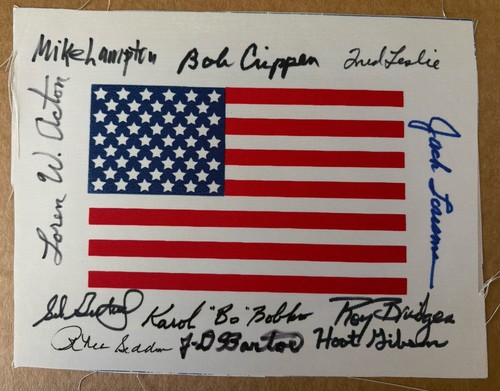 Mike Lampton Bob Crippen Fred Leslie
Loren W. Acton
Jack Lousma
Karol "Bo" Bobko Roy Bridges
Rhea Seddon J-D Bartoe Hoot Gibson